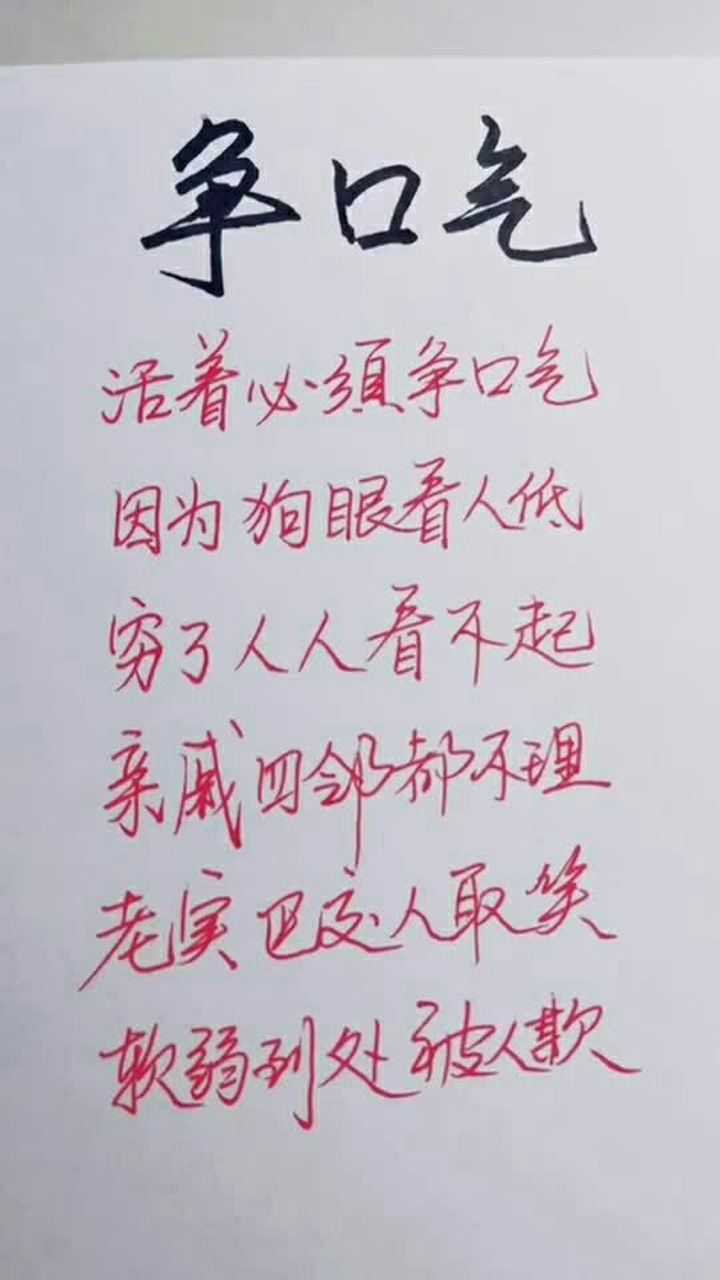 争口气
活着必須争口气
因为狗眼看人低
穷了人人看不起
亲戚四邻都不理
老实巴交人取笑
软弱到处被人欺